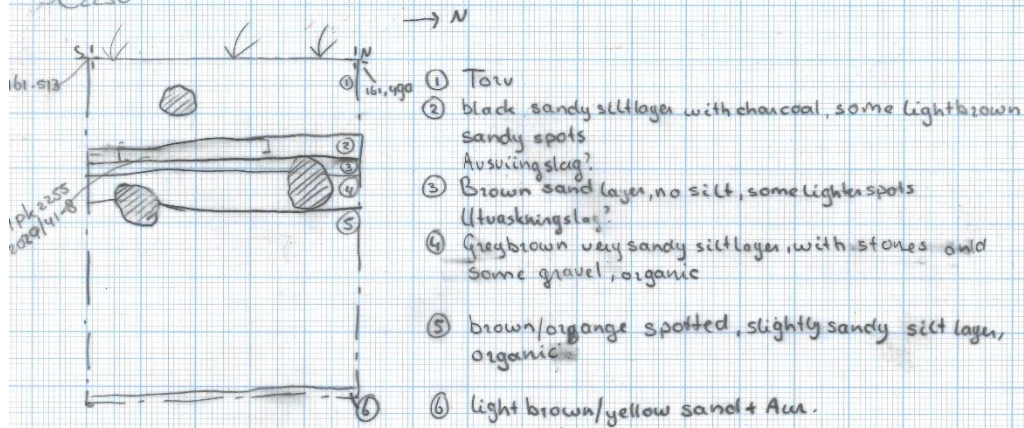 → N
S
N
161.513
161,490
①
②
③
④
⑤
⑥
2020/41-8
① Torv
② black sandy siltlayer with charcoal, some lightbrown
sandy spots
Avsviingslag?
③ Brown sand layer, no silt, some lighter spots
Utvaskningslag?
④ Greybrown very sandy siltlayer, with stones and
some gravel, organic
⑤ brown/organge spotted, slightly sandy silt layer,
organic
⑥ light brown/yellow sand + Aur.